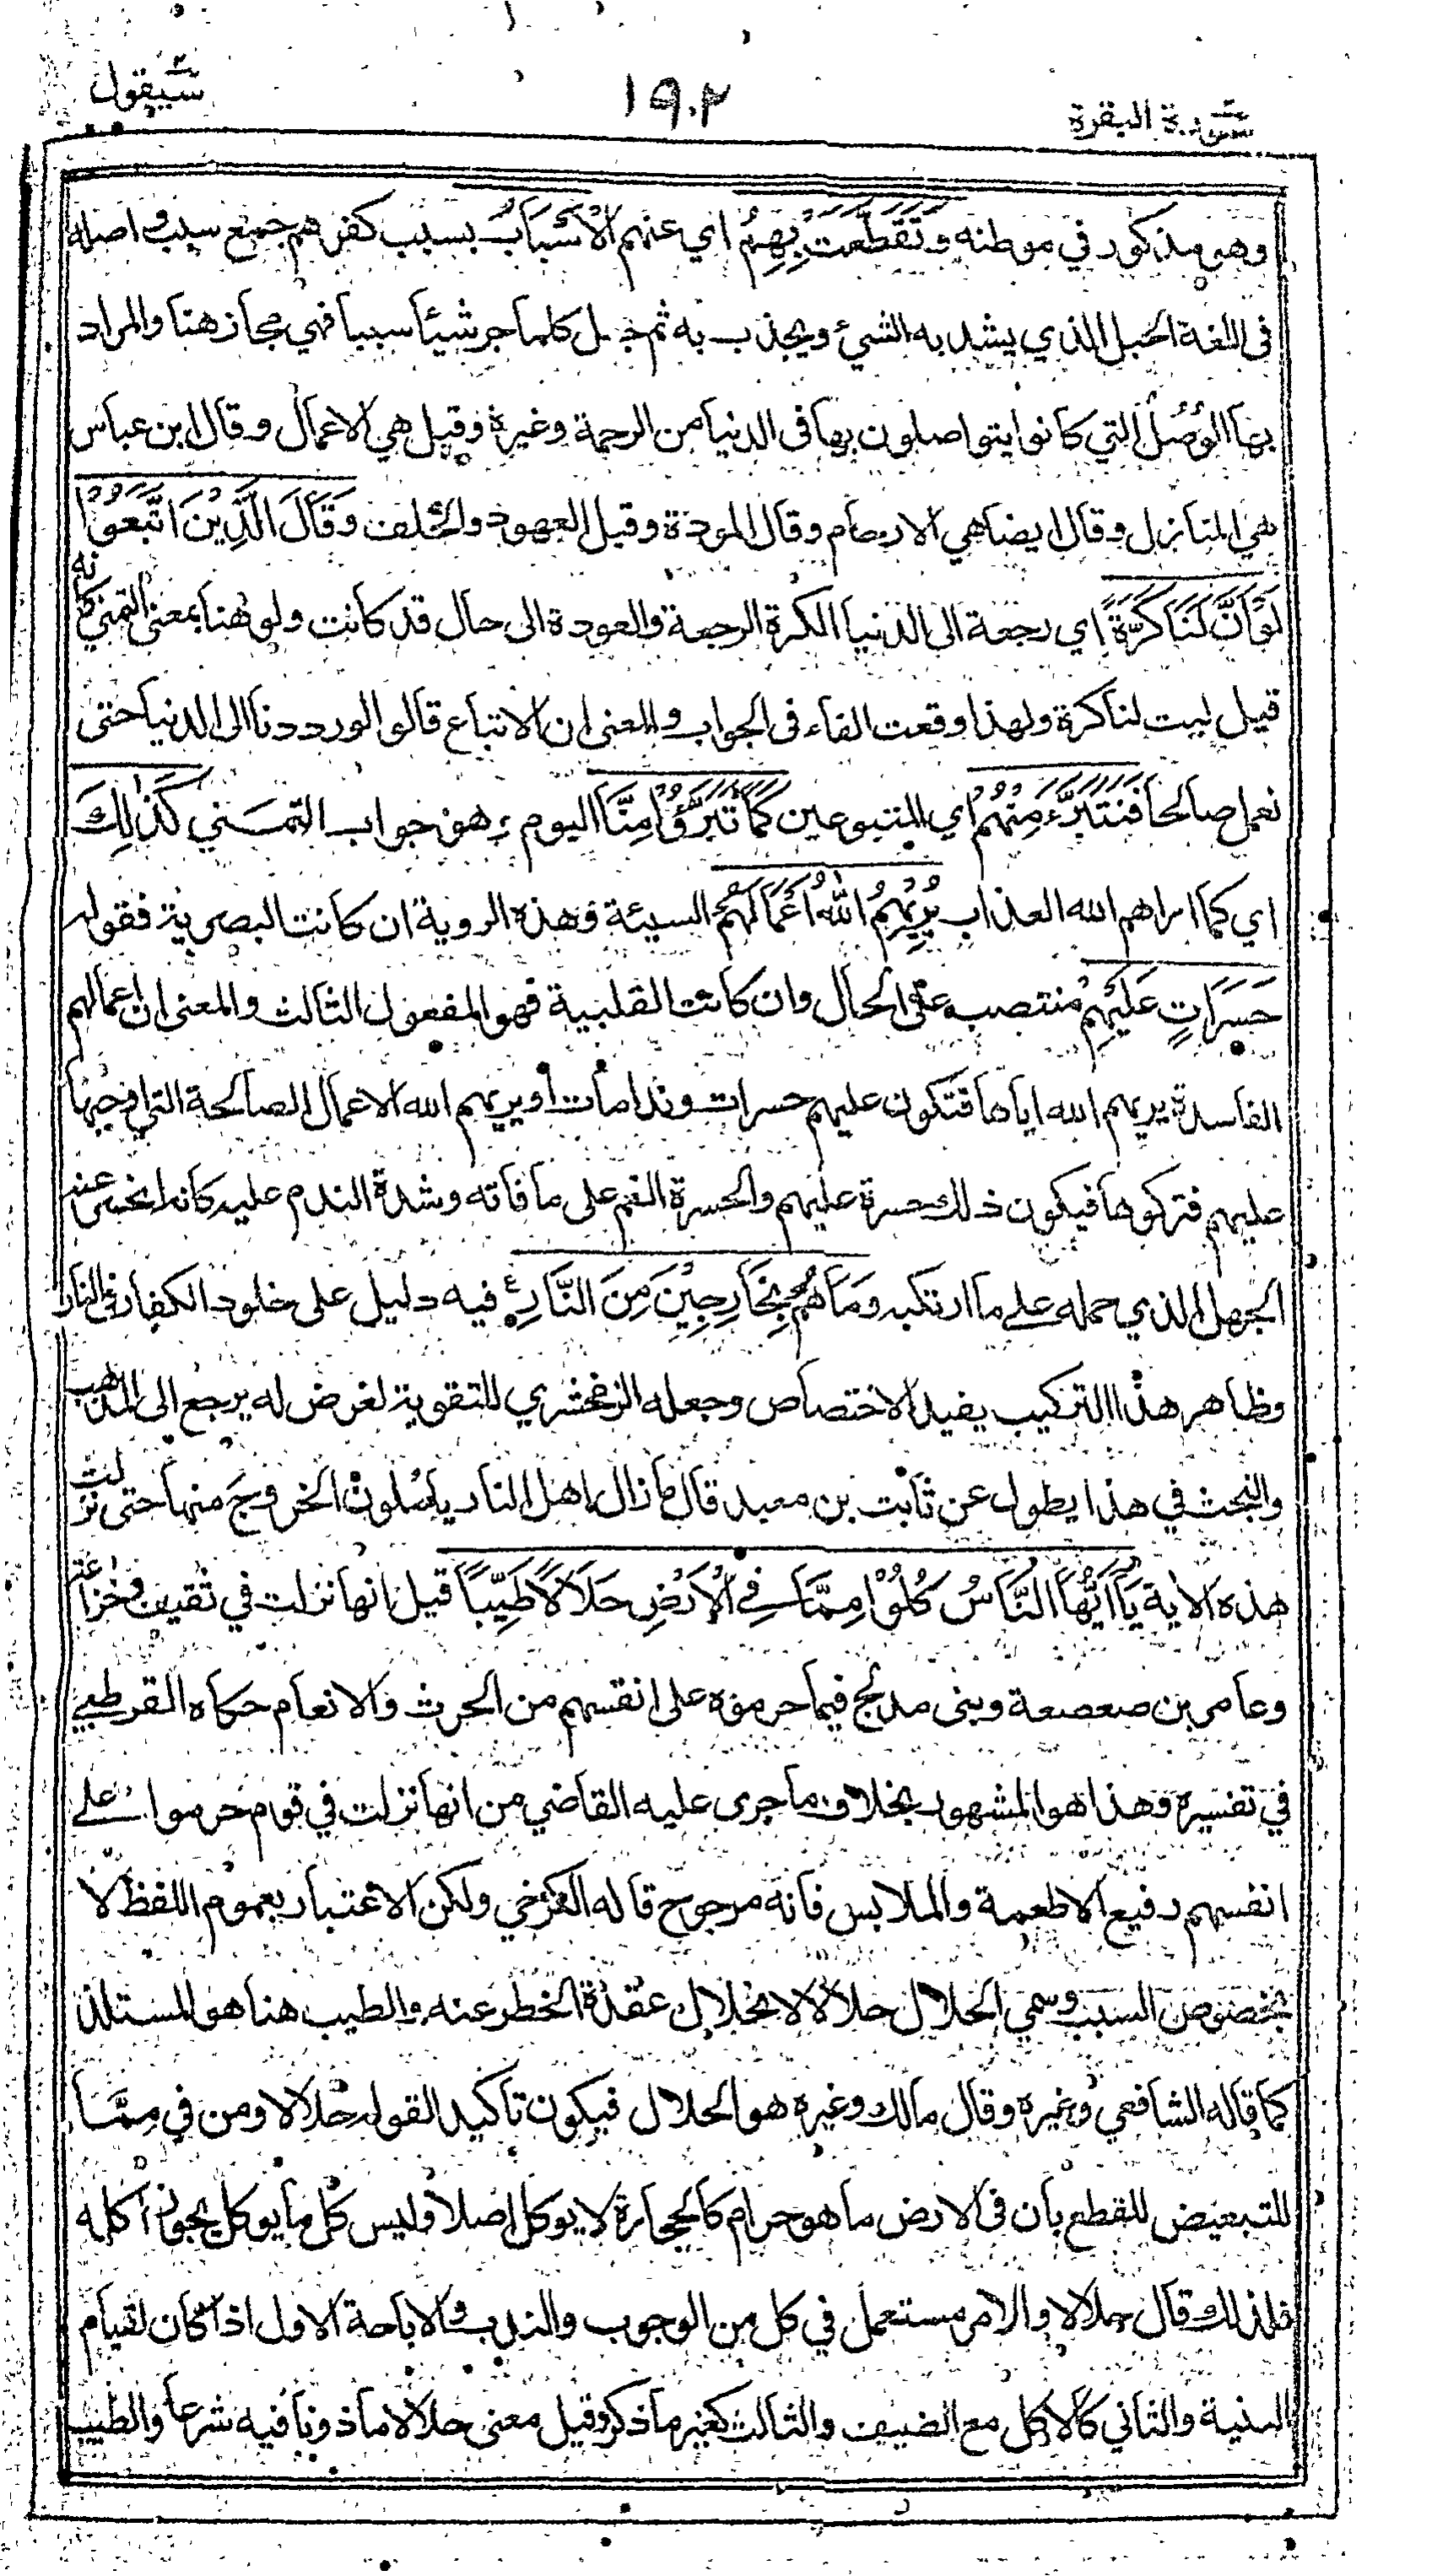 سورة البقرة ١٩٢ سيقول
وهو مذكور في موطنه وَتَقَطَّعَتْ بِهِمُ اي عنهم الْاَسْبَابُ بسبب كفرهم جميع سبب واصله
فى اللغة الحبل الذي يشد به الشيئ ويجذب به ثم جعل كلما جر شيئا سببا فهي مجاز هنا والمراد
بها الوُصَل التي كانوا يتواصلون بها فى الدنيا من الرحمة وغيرة وقيل هي الاعمال وقال ابن عباس
هي المنازل وقال ايضا هي الارحام وقال المودة وقيل العهود والحلف وَقَالَ الَّذِيْنَ اتَّبَعُوْا
لَوْ اَنَّ لَنَا كَرَّةً اي رجعة الى الدنيا الكرة الرجعة والعودة الى حال قد كانت ولو هنا بمعنى التمني كانه
قيل ليت لنا كرة ولهذا وقعت الفاء فى الجواب والمعنى ان الاتباع قالوا لو رددنا الى الدنيا حتى
نعمل صالحا فَنَتَبَرَّءَ مِنْهُمْ اي المتبوعين كَمَا تَبَرَّؤُا مِنَّا اليوم وهو جواب التمني كَذٰلِكَ
اي كما اراهم الله العذاب يُرِيْهِمُ اللّٰهُ اَعْمَالَهُمْ السيئة وهذه الروية ان كانت البصرية فقوله
حَسَرَاتٍ عَلَيْهِمْ منتصب على الحال وان كانت القلبية فهو المفعول الثالث والمعنى ان اعمالهم
الفاسدة يريهم الله اياها فتكون عليهم حسرات وندامات او يريهم الله الاعمال الصالحة التي اوجبها
عليهم فتركوها فيكون ذلك حسرة عليهم والحسرة الغم على ما فاته وشدة الندم عليه كانه انحسر عنه
الجهل الذي حمله على ما ارتكبه وَمَا هُمْ بِخَارِجِيْنَ مِنَ النَّارِ فيه دليل على خلود الكفار فى النار
وظاهر هذا التركيب يفيد الاختصاص وجعله الزمخشري للتقوية لغرض له يرجع الى المذهب
والبحث في هذا يطول عن ثابت بن معبد قال ما زال اهل النار ياملون الخروج منها حتى نزلت
هذه الاية يَا اَيُّهَا النَّاسُ كُلُوْا مِمَّا فِي الْاَرْضِ حَلَالًا طَيِّبًا قيل انها نزلت في ثقيف وخزاعة
وعامر بن صعصعة وبنى مدلج فيما حرموه على انفسهم من الحرث والانعام حكاه القرطبي
في تفسيره وهذا هو المشهور بخلاف ما جرى عليه القاضي من انها نزلت في قوم حرموا على
انفسهم رفيع الاطعمة والملابس فانه مرجوح قاله الكرخي ولكن الاعتبار بعموم اللفظ لا
بخصوص السبب وسمي الحلال حلالا لانحلال عقدة الخطر عنه والطيب هنا هو المستلذ
كما قاله الشافعي وغيره وقال مالك وغيره هو الحلال فيكون تاكيد القوله حلالا ومن في مِمَّا
للتبعيض للقطع بان فى الارض ما هو حرام كالحجارة لا يوكل اصلا وليس كل ما يوكل يجوز اكله
فلذلك قال حلالا والامر مستعمل في كل من الوجوب والندب والاباحة الاول اذا كان لقيام
البنية والثاني كالاكل مع الضيف والثالث كغير ما ذكر وقيل معنى حلالا ماذونا فيه شرعا والطيب